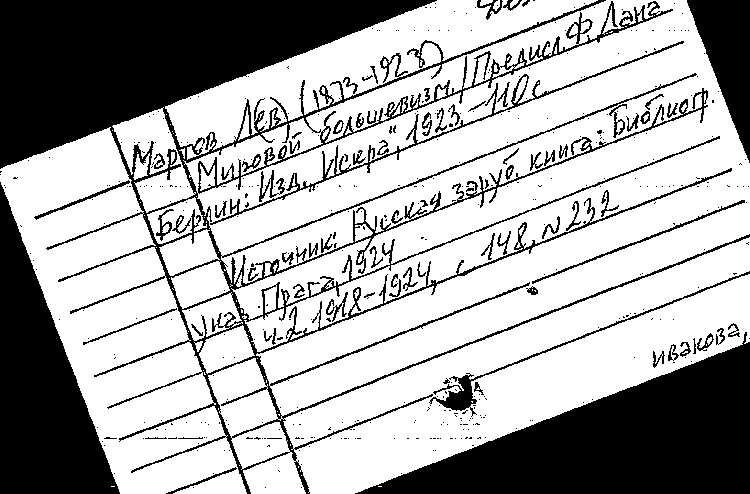 Мартов, Лев (1873-1923)
Мировой большевизм. / Предисл. Ф. Дана
Берлин: Изд. „Искра", 1923. - 110 с.
Источник: Русская заруб. книга: Библиогр.
указ. Прага, 1924
ч. 2. 1918-1924, с 148, N 232
ивакова,